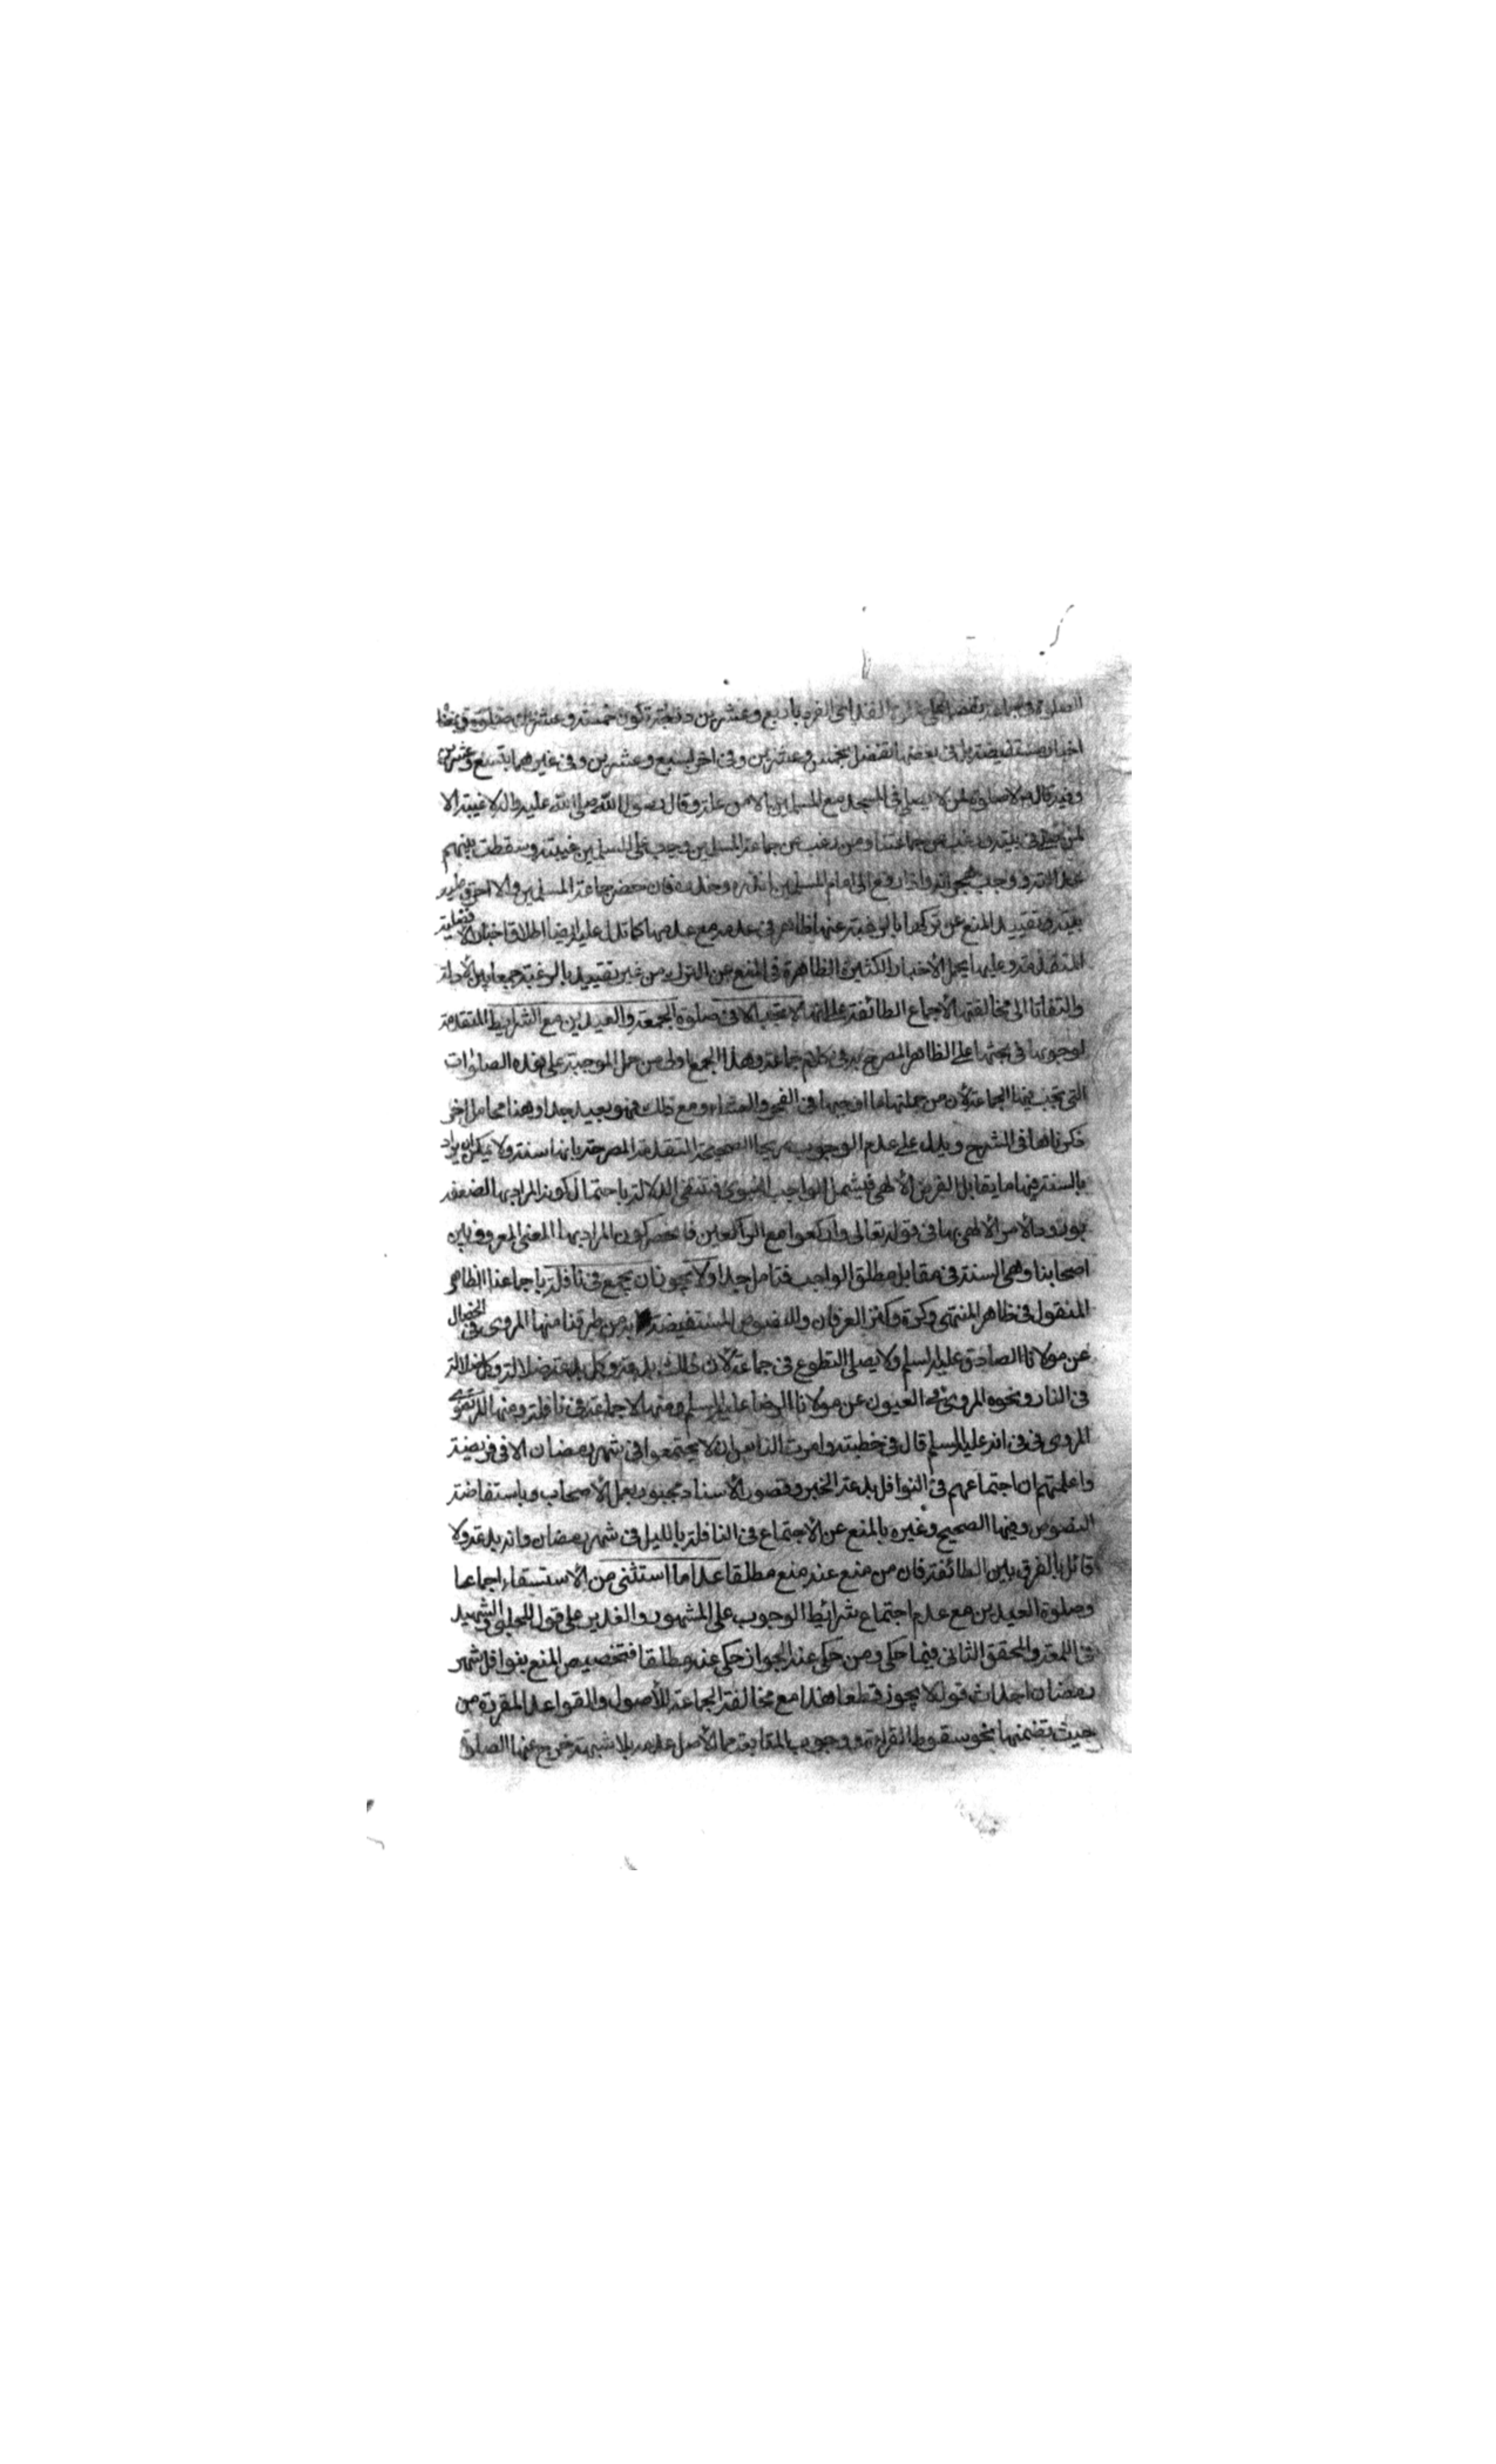 الصلوة في جماعة تفضل على صلوة الفذ اى الفرد باربع وعشرين درجة تكون خمسة وعشرين صلوة وبمعناه
اخبار مستفيضة بل فى بعضها تفضل بخمس وعشرين وفى اخر بسبع وعشرين وفى غيرهما بتسع وعشرين
وفيه قال لا صلوة لمن لا يصلى فى المسجد مع المسلمين الا من علة وقال رسول الله صلى الله عليه واله لا غيبة الا
لمن صلى فى بيته ورغب عن جماعتنا ومن رغب عن جماعة المسلمين وجب على المسلمين غيبته وسقطت بينهم
عدالته ووجب هجرانه واذا رفع الى امام المسلمين انذره وحذره فان حضر جماعة المسلمين والا احرق عليه
بيته وتقييد المنع عن تركها بالرغبة عنها ظاهر فى عدمه مع عدمها كما تدل عليه ايضا اطلاق اخبار الافضلية
المتقدمة وعليها يحمل الأخبار الكثيرة الظاهرة فى المنع عن الترك من غير تقييد بالرغبة جمعا بين الأدلة
والتفاتا الى مخالفتها لأجماع الطائفة على انها لا تجب الا فى صلوة الجمعة والعيدين مع الشرايط المتقدمة
لوجوبها فى بحثها على الظاهر المصرح به فى كلام جماعة وهذا الجمع اولى من حمل الموجبة على هذه الصلوات
التى تجب فيها الجماعة لأن من جملتها ما اوجبها فى الفجر والعشاء ومع ذلك فهو بعيد جدا وهنا محامل اخر
ذكرناها فى الشرح ويدل على عدم الوجوب صريحا الصحيحة المتقدمة المصرحة بانها سنة ولا يمكن ان يراد
بالسنة فيها ما يقابل الفرض الألهى فيشمل الواجب النبوى فتنتفى الدلالة باحتمال كون المراد بها
بورود الأمر الألهى بها فى قوله تعالى واركعوا مع الراكعين فانحصر كون المراد بها المعنى المعروف بين
اصحابنا وهى السنة فى مقابل مطلق الواجب فتامل جدا ولا يجوز ان يجمع فى نافلة باجماعنا الظاهر
المنقول فى ظاهر المنتهى وكرة وكنز العرفان وللنصوص المستفيضة به من طرقنا منها المروى فى الخصال
عن مولانا الصادق عليه السلم ولا يصلى التطوع فى جماعة لأن ذلك بدعة وكل بدعة ضلالة وكل ضلالة
فى النار ونحوه المروى فى العيون عن مولانا الرضا عليه السلم ومنها لا جماعة فى نافلة ومنها المرتضوى
المروى فى فى انه عليه السلم قال فى خطبته وامرت الناس ان لا يجتمعوا فى شهر رمضان الا فى فريضة
واعلمتهم ان اجتماعهم فى النوافل بدعة الخبر وقصور الأسناد مجبور بعمل الأصحاب وباستفاضة
النصوص وفيها الصحيح وغيره بالمنع عن الاجتماع فى النافلة بالليل فى شهر رمضان وانه بدعة ولا
قائل بالفرق بين الطائفة فان من منع عنه منع مطلقا عدا ما استثنى من الأستسقاء اجماعا
وصلوة العيدين مع عدم اجتماع شرائط الوجوب على المشهور والغدير على قول للحلبى والشهيد
فى اللمعة والمحقق الثانى فيما حكى ومن حكى عنه الجواز حكى عنه مطلقا فتخصيص المنع بنوافل شهر
رمضان احداث قول لا يجوز قطعا هذا مع مخالفة الجماعة للأصول والقواعد المقررة من
حيث تضمنها نحو سقوط القراءة ووجوب المتابعة مما الأصل عدمه بلا شبهة خرج عنها الصلوة